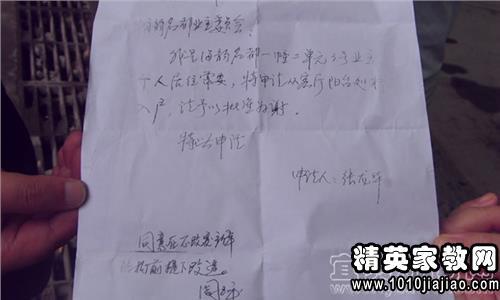 名都业主委员会:
我是海韵名都一幢二单元 号业主
个人居住需要,特申请从客厅阳台
入户,请予以批准为谢。
特此申请
申请人:张
同意在不改变
结构前提下改造。
精英家教网
www.1010jiajiao.com